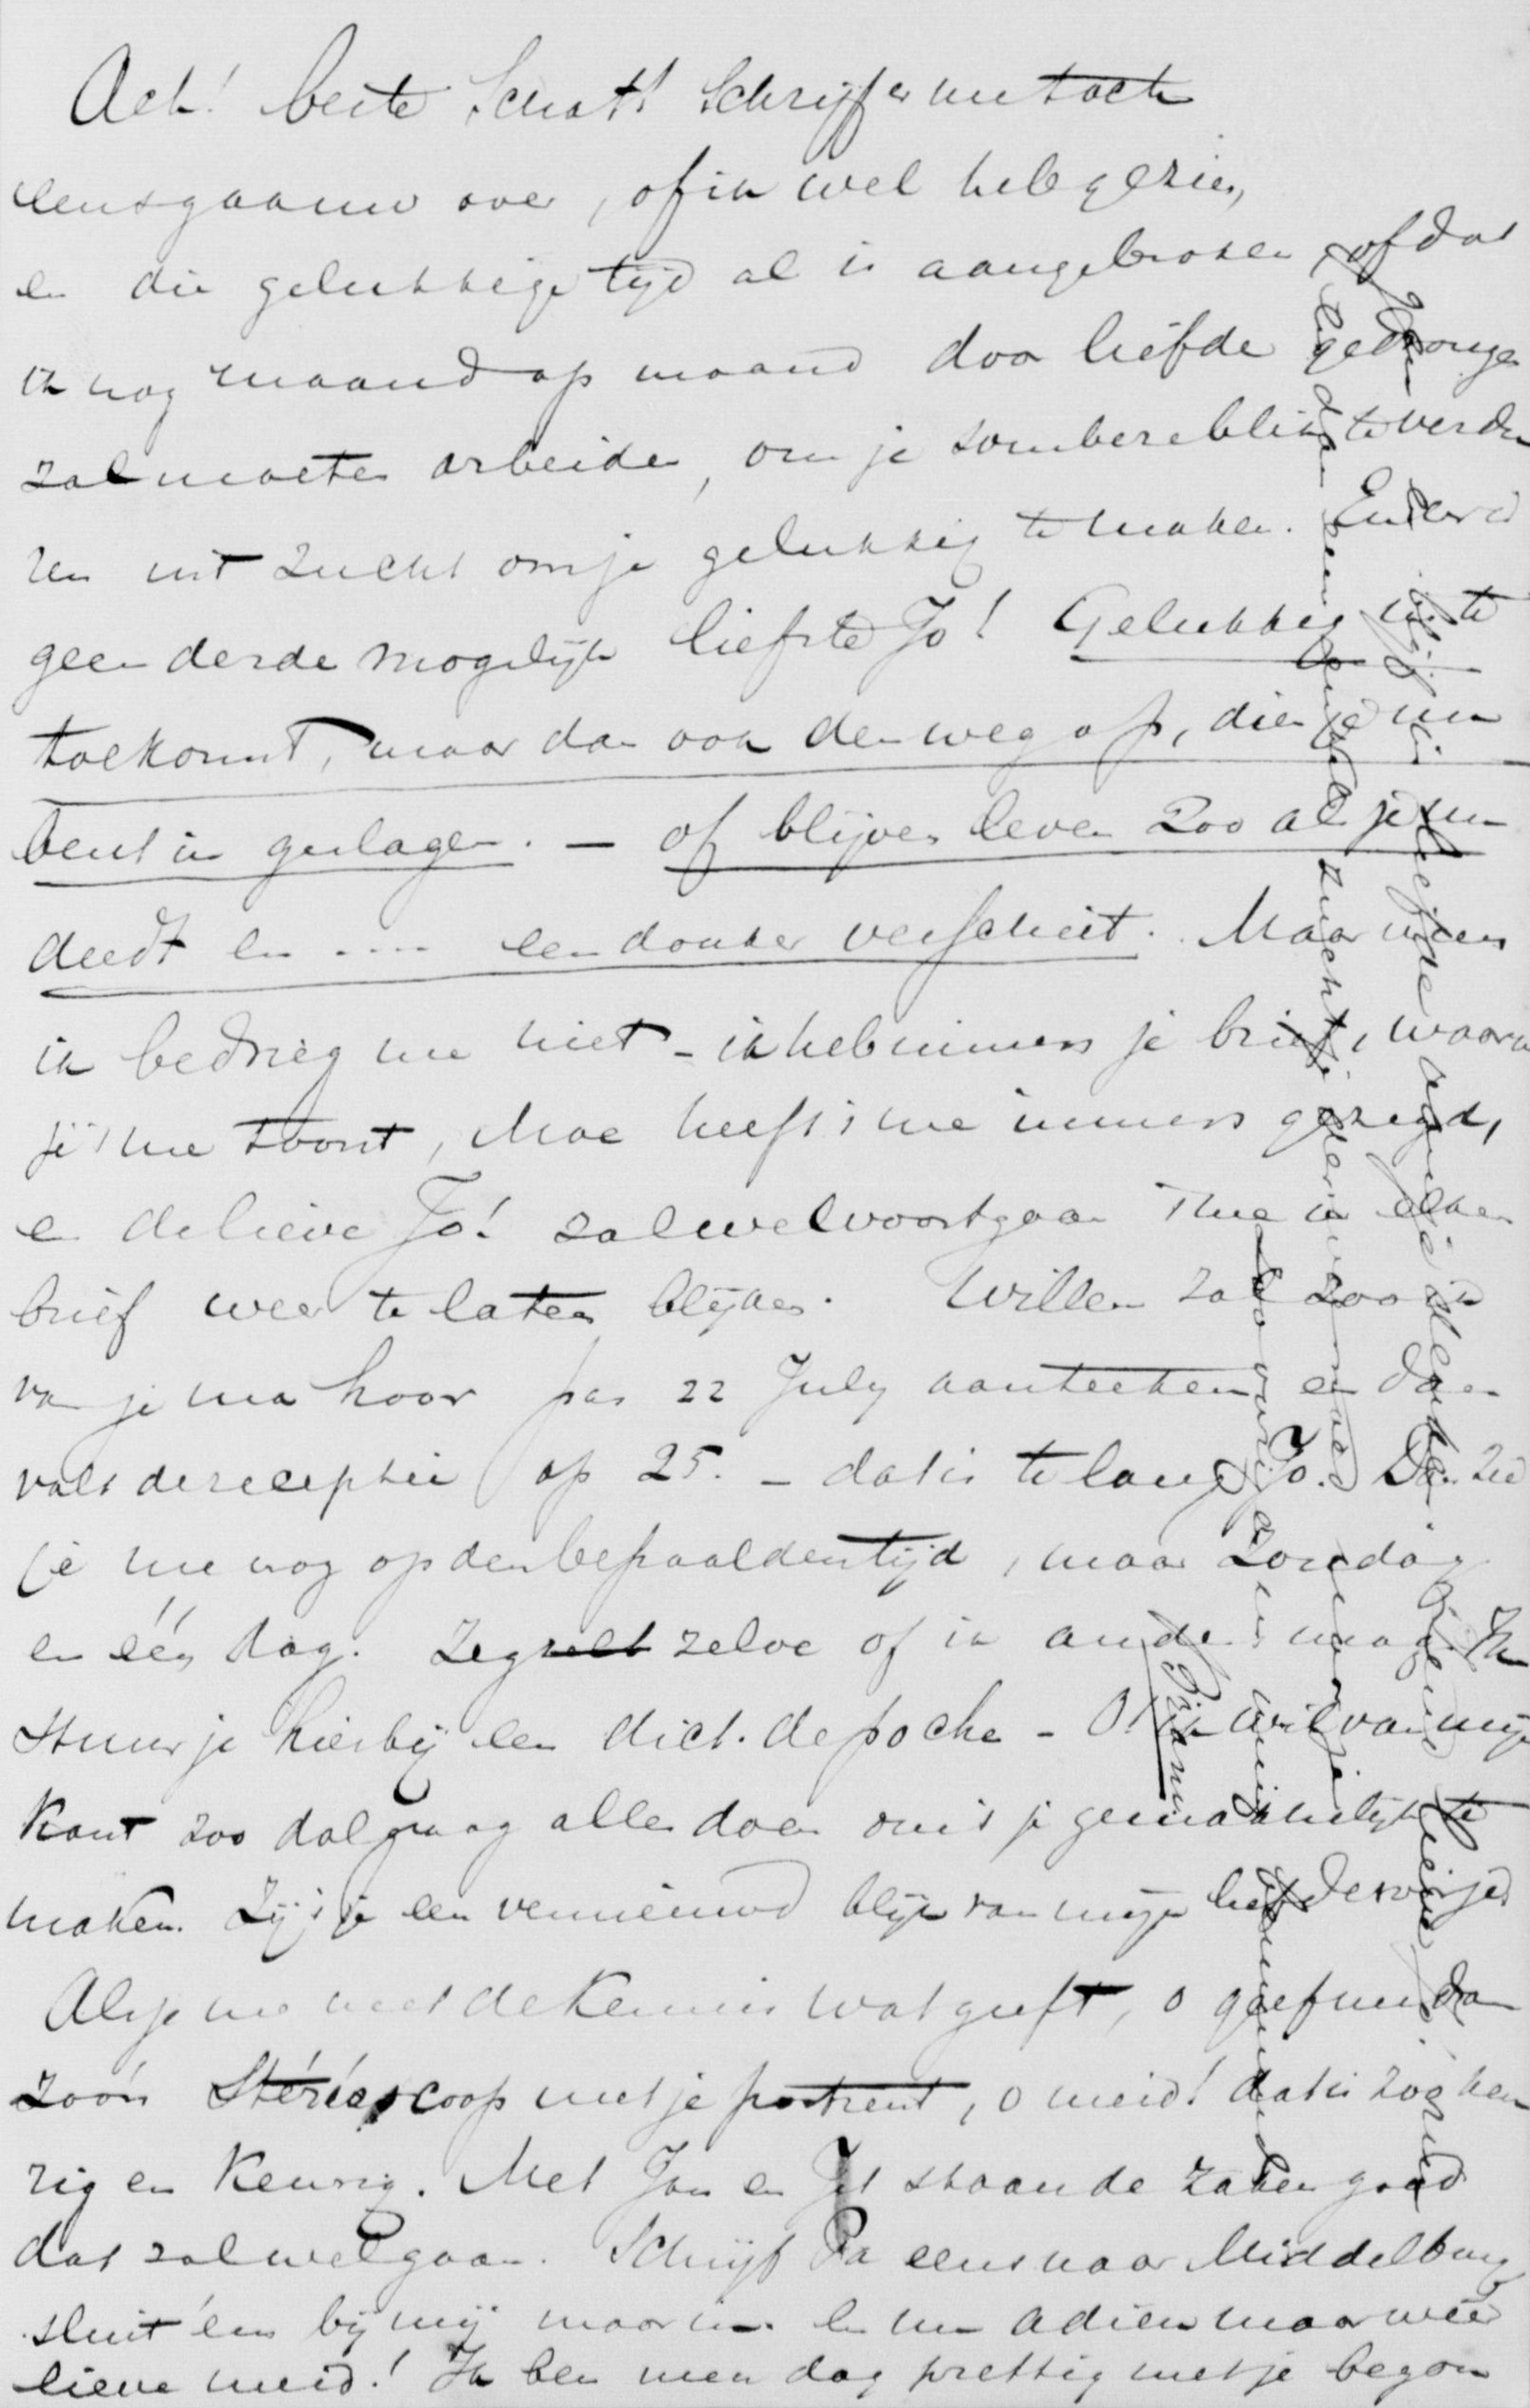 Ach! beste Schat! Schrijf er me toch
eens gaauw over, of ik wel heb gezien,
en die gelukkige tijd al is aangebroken, of dat
ik nog maand op maand door liefde gedrongen
zal moeten arbeiden, om je sombere blik te verdu
ren uit zucht om je gelukkig te maken. En er is
geen derde mogelijk liefste Jo! Gelukkig in de
toekomst, maar dan ook den weg op, dien je nu
bent in geslagen. — of blijven leven zoo als je nu
deedt en .... een donker verschiet. Maar neen
ik bedrieg me niet - ik heb immers je brief, waarin
je 't me toont, Moe heeft 't me immers gezegd,
en de lieve Jo! zal wel voortgaan 't me in elken
brief weer te laten blijken. Willem zal zoo ik
van je ma hoor pas 22 July aanteekenen en dan
valt de receptie op 25. - dat is te lang Jo. Dan zie
je me nog op den bepaalden tijd, maar Zondag
en één dag. Zeg zelve of ik anders mag. Ik
stuur je hierbij een dict. de poche - O! ik wil van mijn
kant zoo dolgraag alles doen om 't je gemakkelijk te
maken. Zij 't je een vernieuwd blijk van mijn liefde voor je.
Als je me met de Kermis wat geeft, o geef me dan
zoo'n Stéréoscoop met je portrait, o meid! dat is zoo keu
rig en keurig. Met Jan en Jet staan de zaken goed
dat zal wel gaan. Schrijf Pa eens naar Middelburg
sluit 'em bij mij maar in. En nu adieu maar weer
lieve meid! Ik ben mijn dag prettig met je begon
liefde
zuchtje